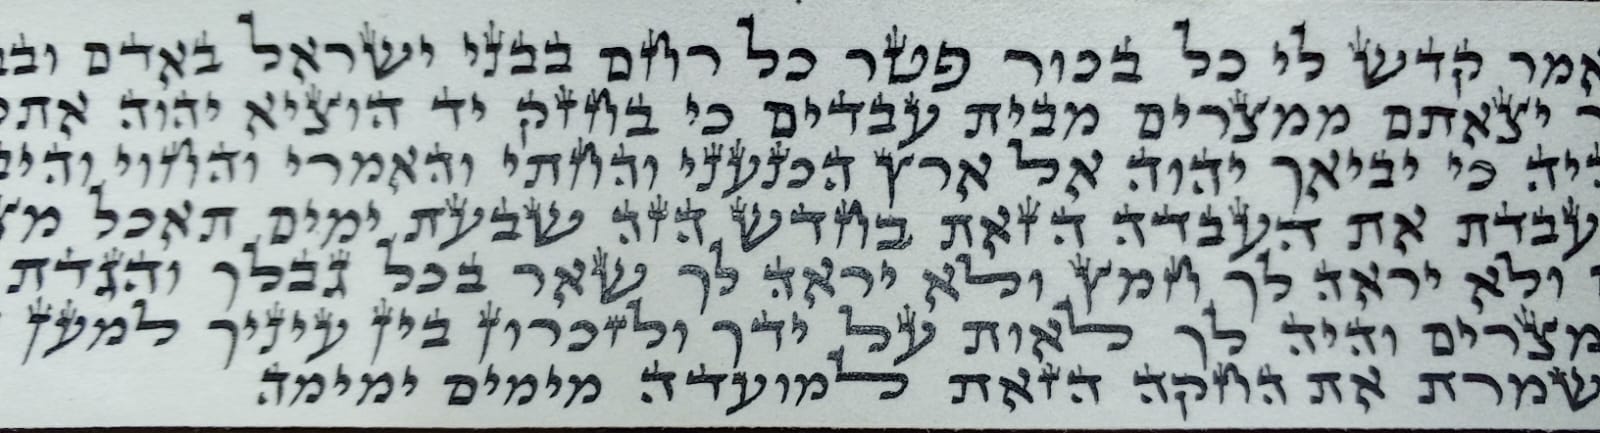 אמר קדש לי כל בכור פטר כל רחם בבני ישראל באדם ובב
ר יצאתם ממצרים מבית עבדים כי בחזק יד הוציא יהוה אתכ
יה כי יביאך יהוה אל ארץ הכנעני והחתי והאמרי והחוי והיב
עבדת את העבדה הזאת בחדש הזה שבעת ימים תאכל מצ
ולא יראה לך חמץ ולא יראה לך שאר בכל גבלך והגדת
מצרים והיה לך לאות על ידך ולזכרון בין עיניך למען
שמרת את החקה הזאת למועדה מימים ימימה